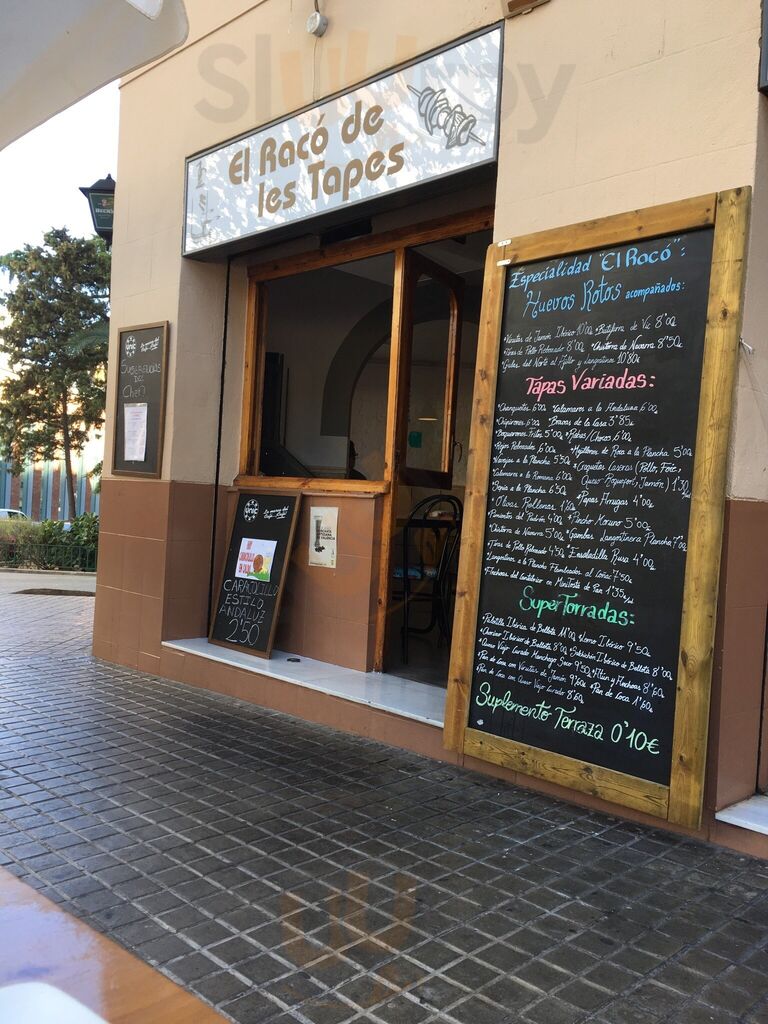 Sluurpy
El Racó de
les Tapes
Especialidad "El Racó":
Huevos Rotos acompañados:
*Virutas de Jamón Ibérico 10'00 *Butifarra de Vic 8'00
*Tiras de Pollo Rebozado 8'00 *Chistorra de Navarra 8'50
*Gulas del Norte al Ajillo y Langostinos 10'80€
Tapas Variadas:
*Chanquetes 6'00 *Calamares a la Andaluza 6'00
*Chipirones 6'00 *Bravas de la Casa 3'85
*Boquerones Fritos 5'00 *Rabas/Chocos 6'00
*Rejos Rebozados 6'00 *Mejillones de Roca a la Plancha 5'00
*Navajas a la Plancha 5'50 *Croquetas Caseras (Pollo, Foie,
*Calamares a la Romana 6'00 Queso Roquefort, Jamón) 1'30
*Sepia a la Plancha 6'50 *Papas Arrugás 4'00
*Olivas Rellenas 1'60 *Pincho Moruno 5'00
*Pimientos del Padrón 4'00 *Gamba Langostinera Plancha 7'00
*Chistorra de Navarra 5'00 *Ensaladilla Rusa 4'00
*Tiras de Pollo Rebozado 4'50
*Langostinos a la Plancha Flambeados al Coñac 7'50€
*Anchoas del Cantábrico en Mini Tosta de Pan 1'35
Super Torradas:
*Paletilla Ibérica de Bellota 11'00 *Lomo Ibérico 9'50
*Chorizo Ibérico de Bellota 8'00 *Salchichón Ibérico de Bellota 8'00
*Queso Viejo Curado Manchego Seco 9'50 *Atún y Anchoas 8'60
*Pan de Coca con Virutas de Jamón 9'60 *Pan de Coca 1'60
*Pan de Coca con Queso Viejo Curado 8'60
Suplemento Terraza 0'10€
Unic
Sugerencias
Del
Chef
Unic
CARACOLILLO
ESTILO
ANDALUZ
2'50